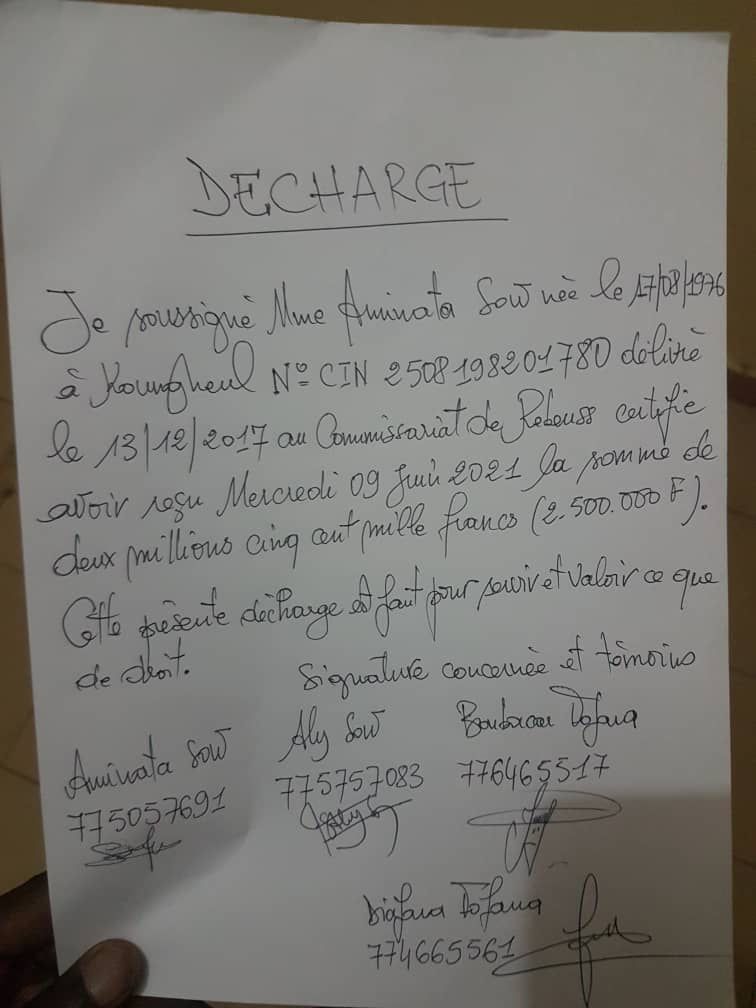 DECHARGE
Je soussigné Mme Aminata Sow née le 17/08/1976
à Koungheul N° CIN 2508198201780 délivré
le 13/12/2017 au Commissariat de Rebeuss certifie
avoir reçu Mercredi 09 Juin 2021 la somme de
deux millions cinq cent mille francs (2.500.000 F).
Cette présente décharge est fait pour servir et valoir ce que
de droit.
Signature concernée et témoins
Aminata Sow
775057691
Aly Sow
775757083
Boubacar Fofana
776465517
Diafara Fofana
774665561